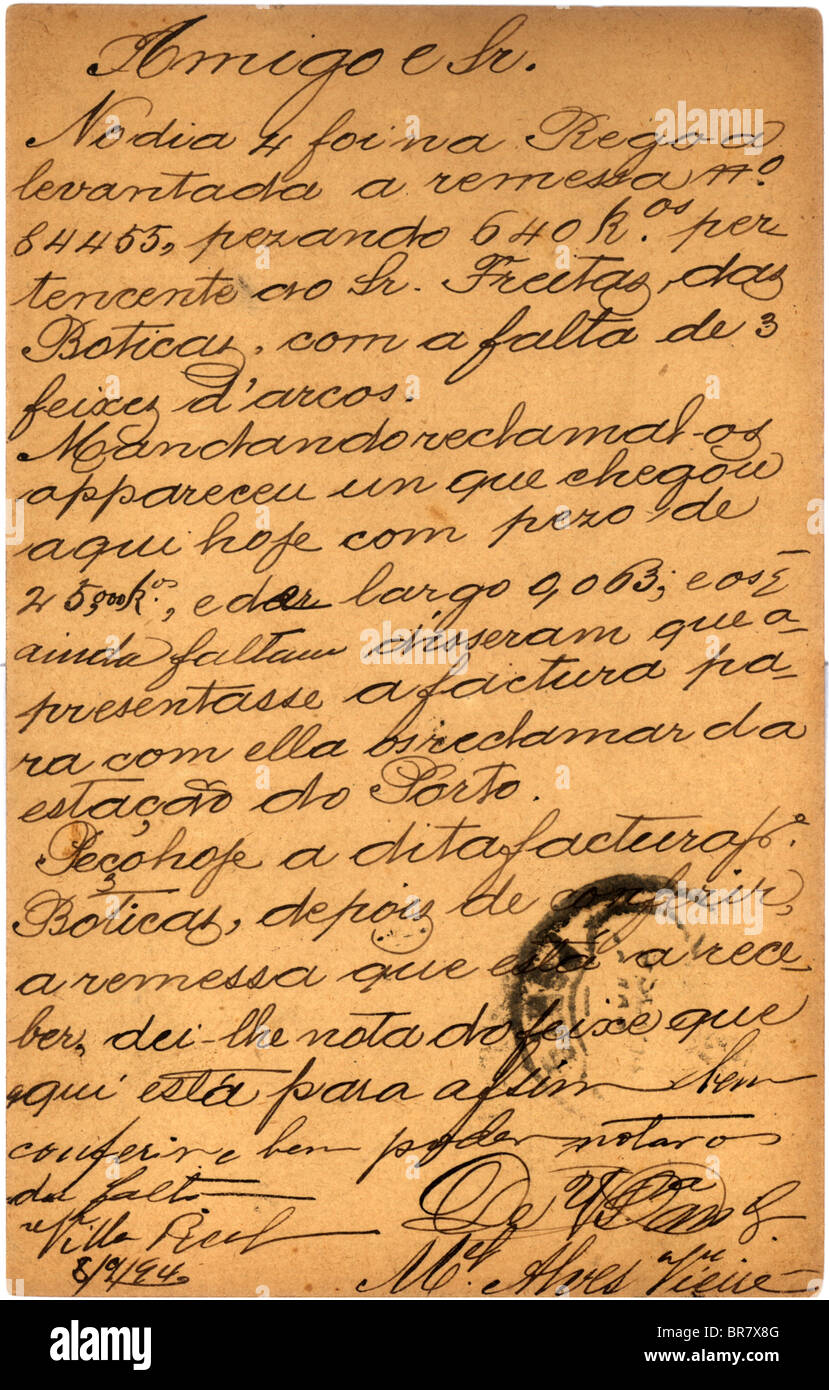 Amigo e Sr.
No dia 4 foi na Regoa
levantada a remessa nº
84455, pezando 640 k.os per-
tencente ao Sr. Freitas, das
Boticas, com a falta de 3
feixes d'arcos.
Mandando reclamal-os
appareceu un que chegou
aqui hoje com pezo de
25,000 k.os, e de largo 0,063; e os
ainda faltam disseram que a-
presentasse a factura pa-
ra com ella os reclamar da
estação do Porto.
Peço hoje a dita factura pª
Boticas, depois de conferir,
a remessa que está a rece-
ber, dei-lhe nota do feixe que
aqui está para assim bem
conferir e bem poder notar os
da falta
De V.
Villa Real
8/9/94.
Mel Alves Vieira
alamy
Image ID: BR7X8G
www.alamy.com